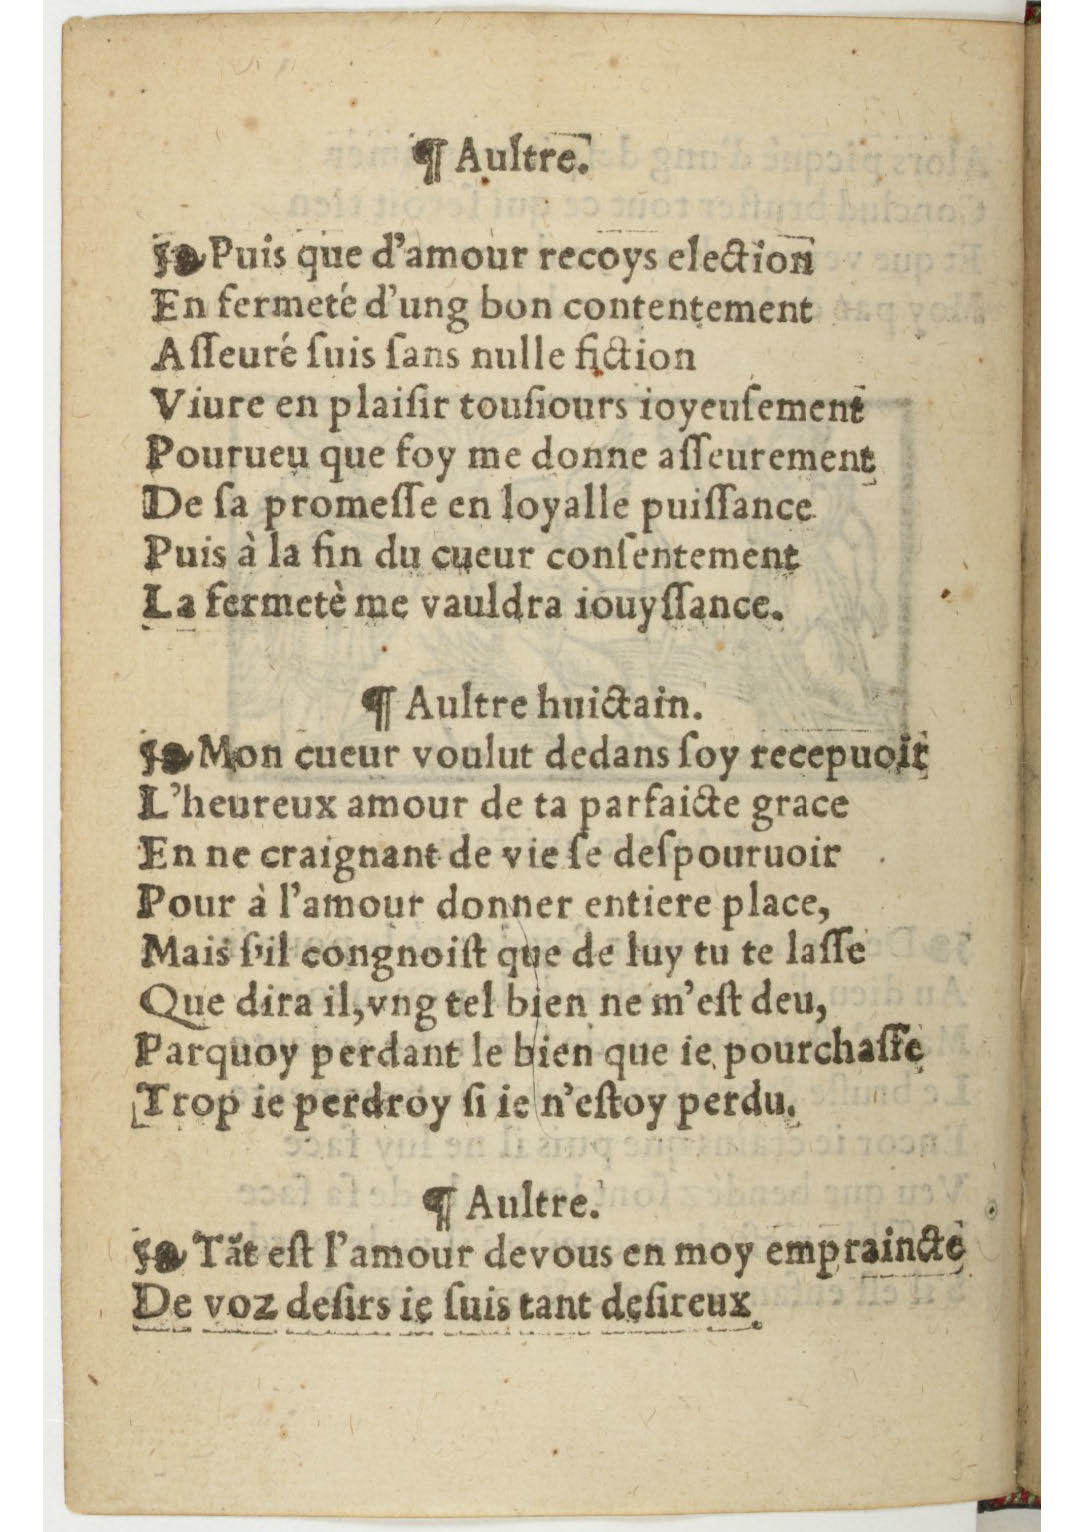 ¶ Aultre.
❧ Puis que d'amour recoys election
En fermeté d'ung bon contentement
Aſſeuré ſuis ſans nulle fiction
Viure en plaiſir touſiours ioyeuſement
Pourueu que foy me donne aſſeurement
De ſa promeſſe en loyalle puiſſance
Puis à la fin du cueur conſentement
La fermetè me vauldra iouyſſance.
¶ Aultre huictain.
❧ Mon cueur voulut dedans ſoy recepuoir
L'heureux amour de ta parfaicte grace
En ne craignant de vie ſe deſpouruoir
Pour à l'amour donner entiere place,
Mais ſ'il congnoiſt que de luy tu te laſſe
Que dira il, vng tel bien ne m'eſt deu,
Parquoy perdant le bien que ie pourchaſſe
Trop ie perdroy ſi ie n'eſtoy perdu.
¶ Aultre.
❧ Tãt eſt l'amour devous en moy empraincte
De voz deſirs ie ſuis tant deſireux